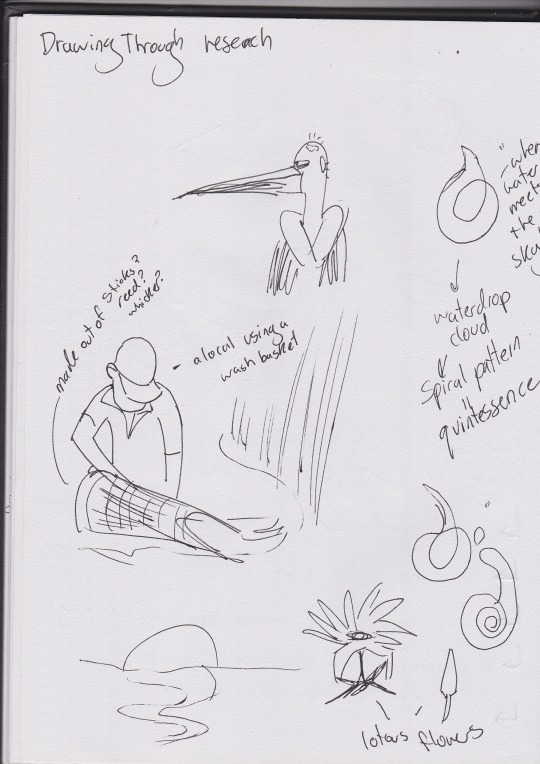 Drawing Through research
"when
water
meets
the
sky"
waterdrop
cloud
Spiral pattern
"
quintessence
made out of sticks?
reed?
whicker?
- a local using a
wash basket
lotus flowers